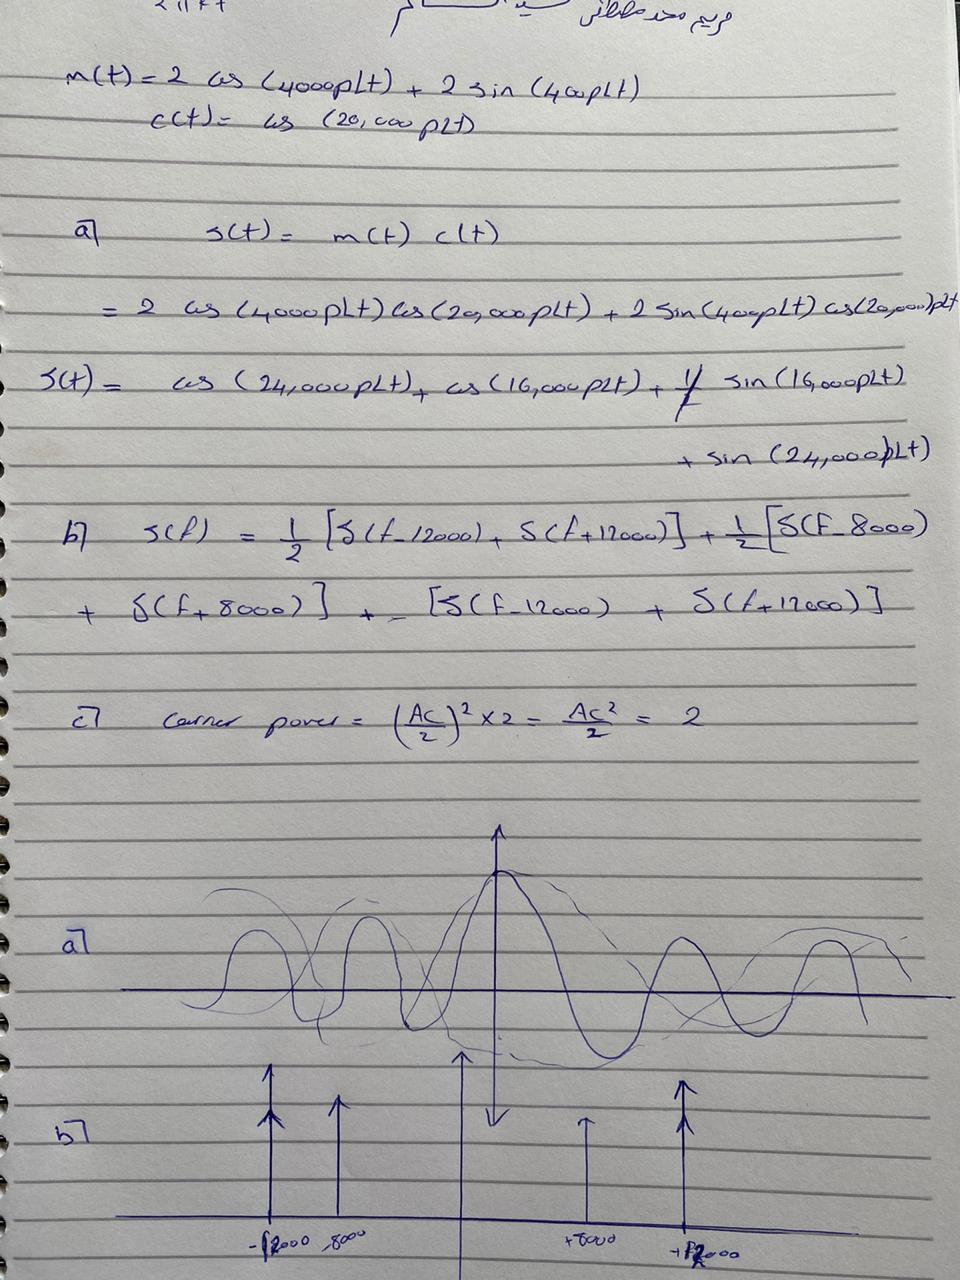 مريم محمد مصطفى
m(t) = 2 cos (4000pLt) + 2 sin (400pLt)
c(t) = cos (20,000pLt)
a) s(t) = m(t) c(t)
= 2 cos (4000pLt) cos (20,000pLt) + 2 sin (400pLt) cos (20,000)pLt
s(t) = cos (24,000pLt) + cos (16,000pLt) + sin (16,000pLt)
+ sin (24,000pLt)
b) s(f) = 1/2 [δ(f-12000) + δ(f+12000)] + 1/2 [δ(f-8000)
+ δ(f+8000)] + - [δ(f-12000) + δ(f+12000)]
c) Carrier power = (Ac/2)² x 2 = Ac²/2 = 2
a)
b)
-12000 -8000 +8000 +12000